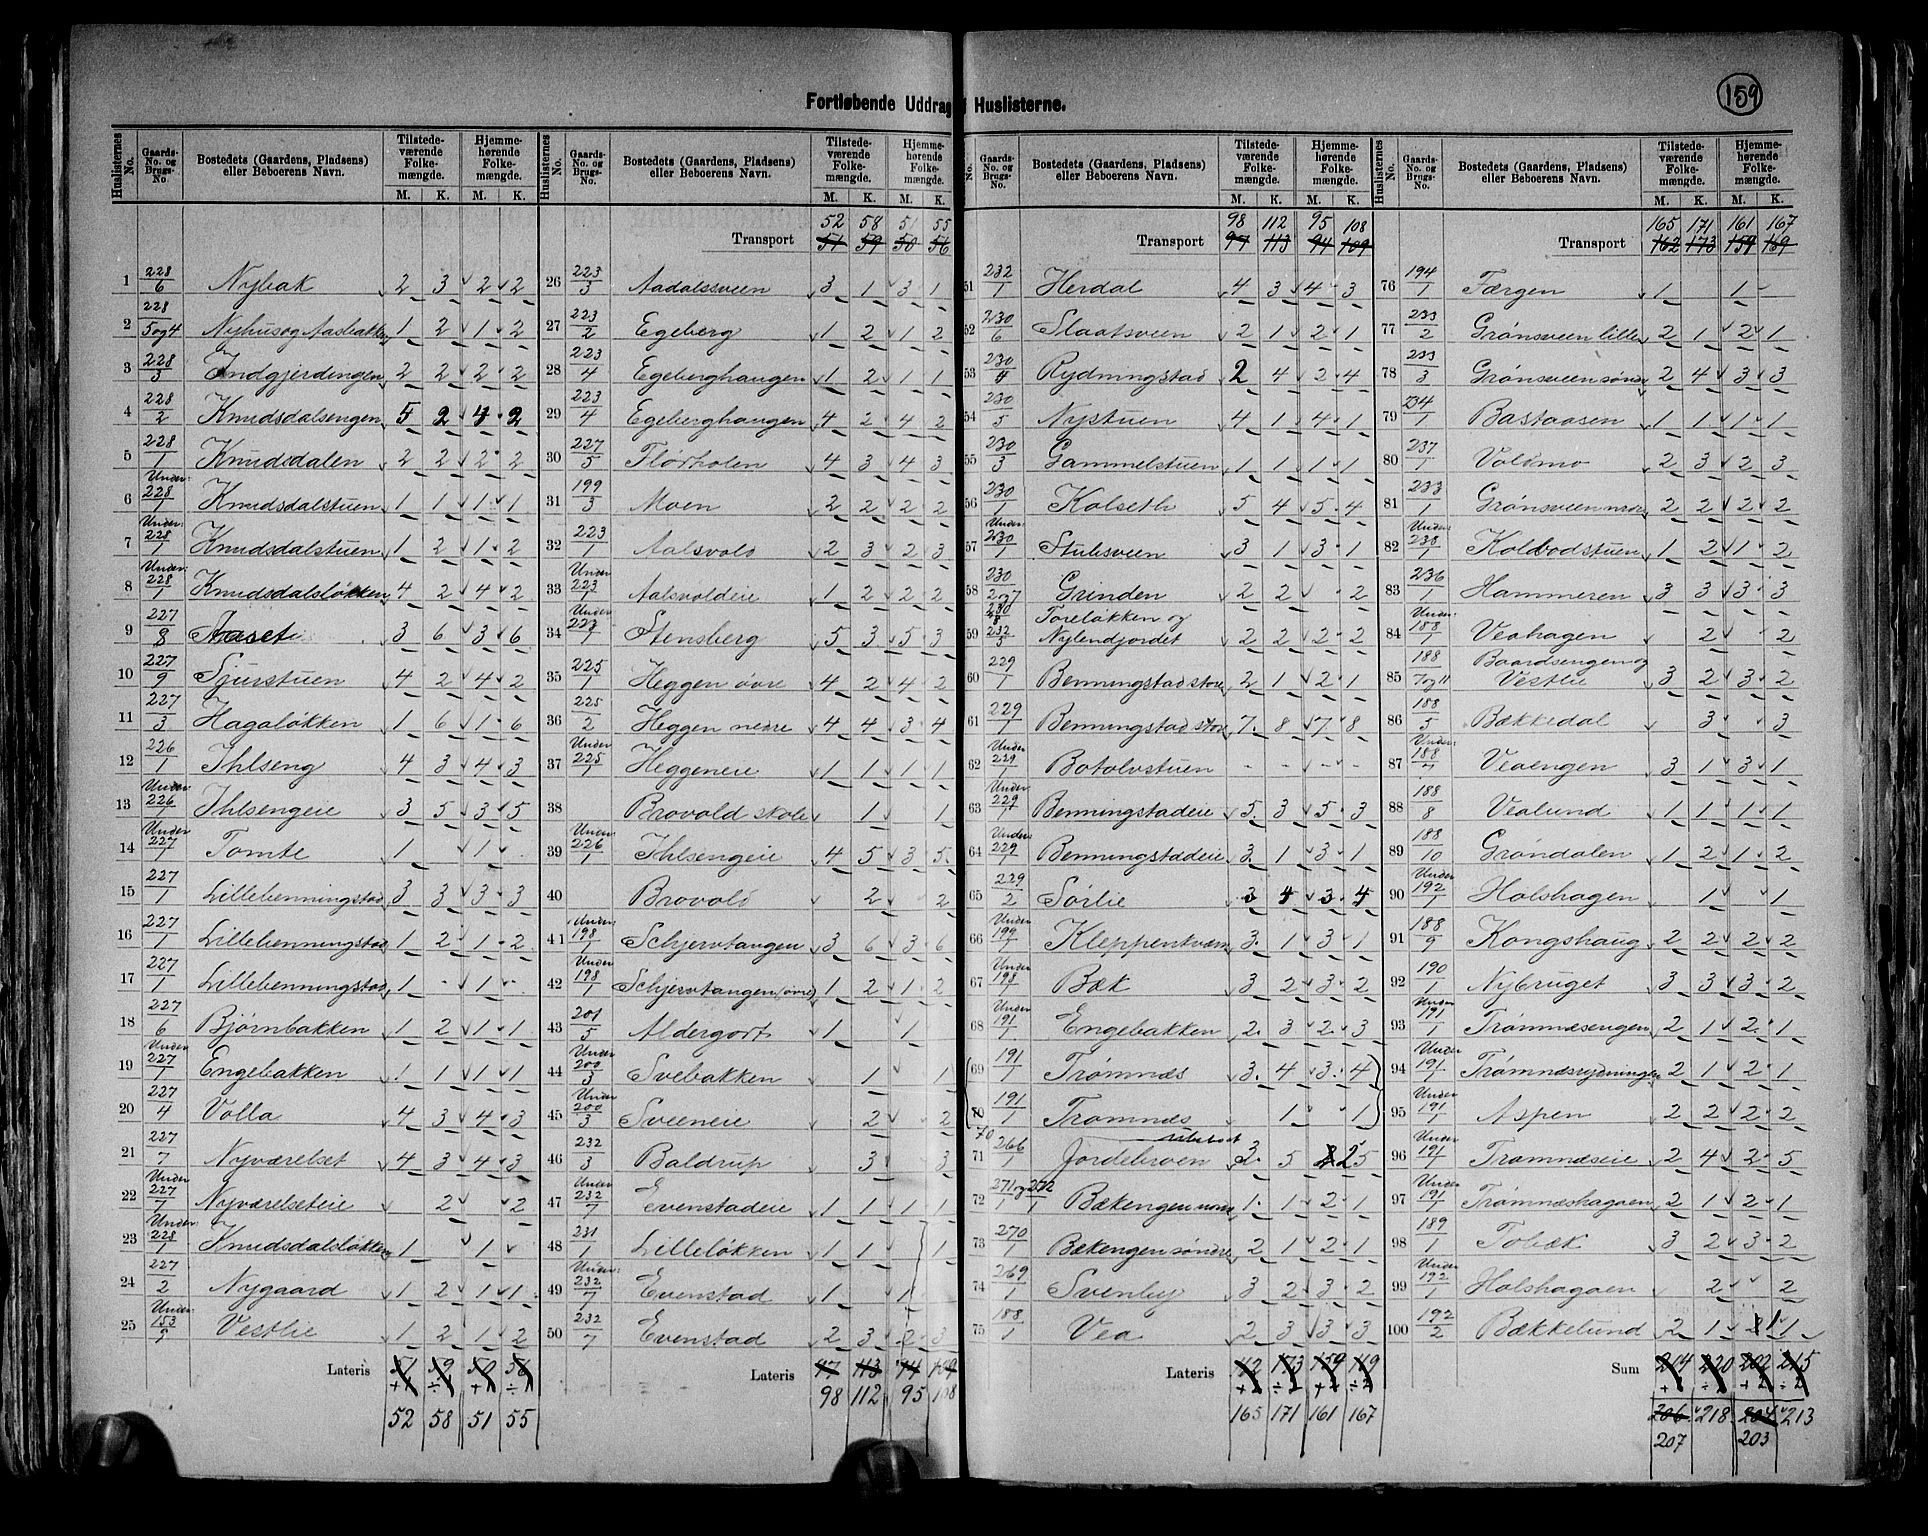 Fortløbende Uddrag Huslisterne.
159
Huslisternes No. Gaards- No. og Brugs- No. Bostedets (Gaardens, Pladsens) eller Beboerens Navn. Tilstede- værende Folke- mængde. M. K. Hjemme- hørende Folke- mængde. M. K.
1 228/6 Nybak 2 3 2 2
2 228/5 og 4 Nyhus og Aasbakken 1 2 1 2
3 228/3 Indgjerdingen 2 2 2 2
4 228/2 Knudsdalsengen 5 2 4 2
5 228/1 Knudsdalen 2 2 2 2
6 Under: 228/1 Knudsdalstuen 1 1 1 1
7 Under: 228/1 Knudsdalstuen 1 2 1 2
8 Under: 228/1 Knudsdalsløkken 4 2 4 2
9 227/8 Aaset 3 6 3 6
10 227/9 Sjurstuen 4 2 4 2
11 227/3 Hagaløkken 1 6 1 6
12 226/1 Ihlseng 4 3 4 3
13 Under 226/1 Ihlsengeie 3 5 3 5
14 Under 227/1 Tomte 1 1
15 227/1 Lillebenningstad 3 3 3 3
16 227/1 Lillebenningstad 1 2 1 2
17 227/1 Lillebenningstad 1 - 1 -
18 227/6 Bjørnbakken 1 2 1 1
19 Under 227/1 Engebakken 1 1 1 1
20 227/4 Volla 4 3 4 3
21 227/7 Nyværelset 4 3 4 3
22 Under 227/7 Nyværelseteie 2 2
23 Under: 228/1 Knudsdalsløkken 1 1
24 227/2 Nygaard 1 2 1 1
25 Under: 153/9 Vestlie 1 2 1 2
Lateris 51 59 50 56
52 58 51 55
Transport 52 58 51 55
51 59 50 56
26 223/3 Aadalssveen 3 1 3 1
27 223/2 Egeberg 1 2 1 2
28 223/4 Egeberghaugen 1 2 1 1
29 223/4 Egeberghaugen 4 2 4 2
30 227/5 Flørholen 4 3 4 3
31 199/3 Moen 2 2 2 2
32 223/1 Aalsvold 2 3 2 3
33 Under: 223/1 Aalsvoldeie 1 2 2 2
34 Under: 223/1 Stensberg 5 3 5 3
35 225/1 Heggen övre 4 2 4 2
36 225/2 Heggen nedre 4 4 3 4
37 Under 225/1 Heggeneie 1 1 1 1
38 Brovold skole 1 1
39 Under: 226/1 Ihlsengeie 4 5 3 5
40 Brovold 2 2
41 Under 198/1 Schjervtangen 3 6 3 6
42 Under 198/1 Schjervtangen (øvre) 1 2 1 2
43 201/5 Aldergott 1 1
44 Under 200/3 Svebakken 1 1
45 Under 200/3 Sveeneie 2 2
46 232/3 Baldrup 3 3
47 Under 232/7 Evenstadeie 1 1 1 1
48 231/1 Lilleløkken 1 1 1
49 Under: 232/7 Evenstad 1 1
50 232/7 Evenstad 2 3 2 3
Lateris 97 113 94 109
98 112 95 108
Transport 98 112 95 108
97 113 94 109
51 232/1 Herdal 4 3 4 3
52 230/6 Slaatsveen 2 1 2 1
53 230/4 Rydningstad 2 4 2 4
54 230/5 Nystuen 4 1 4 1
55 230/3 Gammelstuen 1 1 1 1
56 230/1 Kolseth 5 4 5 4
57 Under: 230/1 Stubsveen 3 1 3 1
58 230/2 og 7 Grinden 2 2 2
59 230/8 232/5 Toreløkken og Nylendjordet 2 2 2 2
60 229/1 Benningstad store 2 1 2 1
61 229/1 Benningstad store 7 8 7 8
62 Under 229/1 Botolvstuen - - - -
63 Under: 229/1 Benningstadeie 5 3 5 3
64 Under: 229/1 Benningstadeie 3 1 3 1
65 229/2 Sørlie 3 4 3 4
66 Under 199/1 Kleppentværn 3 1 3 1
67 Under 198/1 Bæk 3 2 3 2
68 Under 191/1 Engebakken 2 3 2 3
69 191/1 Trømnæs 3 4 3 4
70 191/1 Tromnæs 1 1
70
71 266/1 Jordebroen 3 5 2 5
72 271 og 272/1 Bækengen nordre 1 1 2 1
73 270/1 Bækengen søndre 2 1 2 1
74 269/1 Svenby 3 2 3 2
75 188/1 Vea 2 3 3 3
Lateris
165 171 161 167
Transport 165 171 161 167
162 173 159 169
76 194/1 Færgen 1 1
77 233/2 Grønsveen lille 2 1 2 1
78 233/3 Grønsveen søndre 2 4 3 3
79 234/1 Bastaasen 1 1 1 1
80 237/1 Voldmo 2 3 2 3
81 233/1 Grønsveen nrdre 2 2 2 2
82 Under: 238/1 Kolbodstuen 1 2 1 2
83 236/1 Hammeren 3 3 3 3
84 Under: 188/1 Veahagen 2 2
85 188/7 og 11 Baardsengen og Vestlie 3 2 3 2
86 188/5 Bækkedal 3 3
87 Under: 188/7 Veaengen 3 1 3 1
88 188/8 Vealund 1 1 1 1
89 188/10 Grøndalen 1 2 1 2
90 Under 192/1 Holshagen 1 1
91 188/9 Kongshaug 2 2 2 2
92 190/1 Nybruget 3 3 3 2
93 Under 191/1 Trømnæsengen 2 1 2 1
94 Under 191/1 Trømnæsrydningen 2 1 2 1
95 Under 191/1 Aspen 2 2 2 2
96 Under 191/1 Tromnæseie 2 4 2 5
97 Under 191/1 Trømnæshagaen 2 1 2 1
98 189/1 Tobæk 3 2 3 2
99 Under 192/1 Holshagaen 2 2
100 192/2 Bækkelund 2 1 1 1
Sum 204 220 202 215
206 218 204 213
207 203